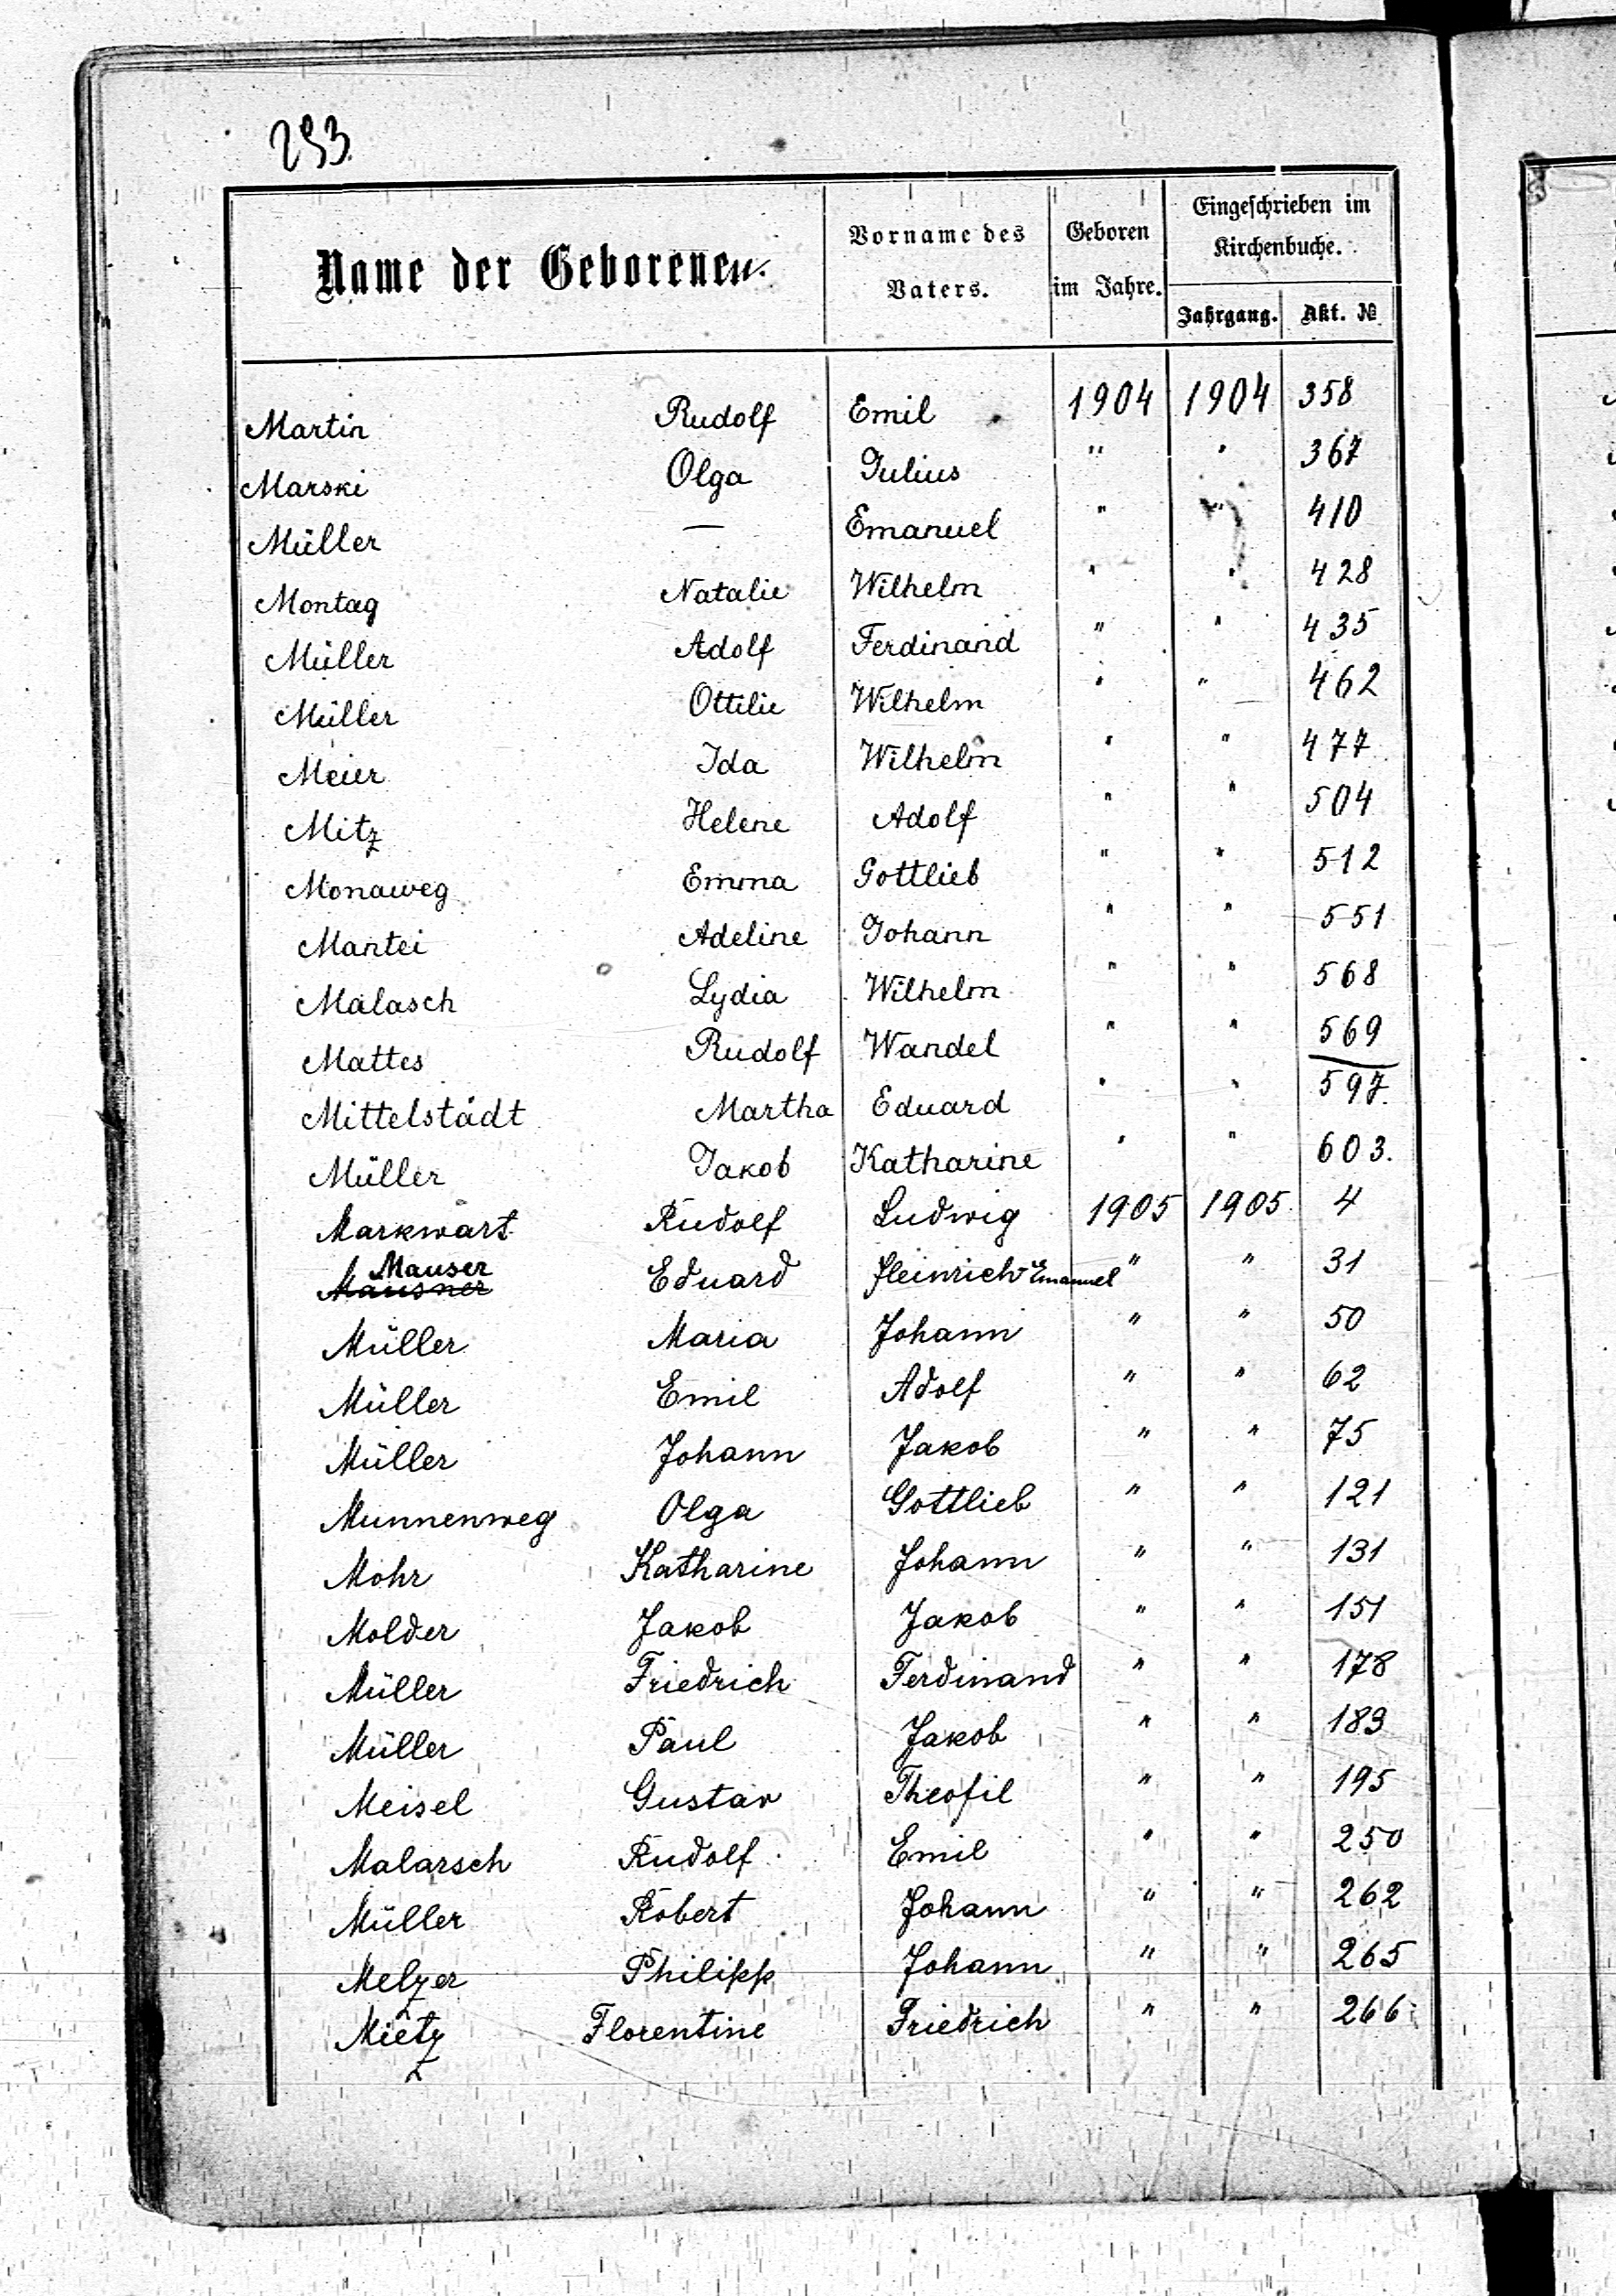 293.
Name der Geborenen.
Vorname des Vaters.
Geboren im Jahre.
Eingeschrieben im Kirchenbuche.
Jahrgang. Akt. №
Martin Rudolf Emil 1904 1904 358
Marski Olga Julius " " 367
Müller — Emanuel " " 410
Montag Natalie Wilhelm " " 428
Müller Adolf Ferdinand " " 435
Müller Ottilie Wilhelm " " 462
Meier Ida Wilhelm " " 477
Mitz Helene Adolf " " 504
Monaweg Emma Gottlieb " " 512
Mantei Adeline Johann " " 551
Malasch Lydia Wilhelm " " 568
Mattes Rudolf Wandel " " 569
Mittelstädt Martha Eduard " " 597.
Müller Jakob Katharine " " 603.
Markwart Rudolf Ludwig 1905 1905 4
Mauser
Mausner Eduard Heinrich Emanuel " " 31
Müller Maria Johann " " 50
Müller Emil Adolf " " 62
Müller Johann Jakob " " 75
Munnenweg Olga Gottlieb " " 121
Mohr Katharine Johann " " 131
Molder Jakob Jakob " " 151
Müller Friedrich Ferdinand " " 178
Müller Paul Jakob " " 183
Meisel Gustav Theofil " " 195
Malarsch Rudolf Emil " " 250
Müller Robert Johann " " 262
Melzer Philipp Johann " " 265
Mietz Florentine Friedrich " " 266